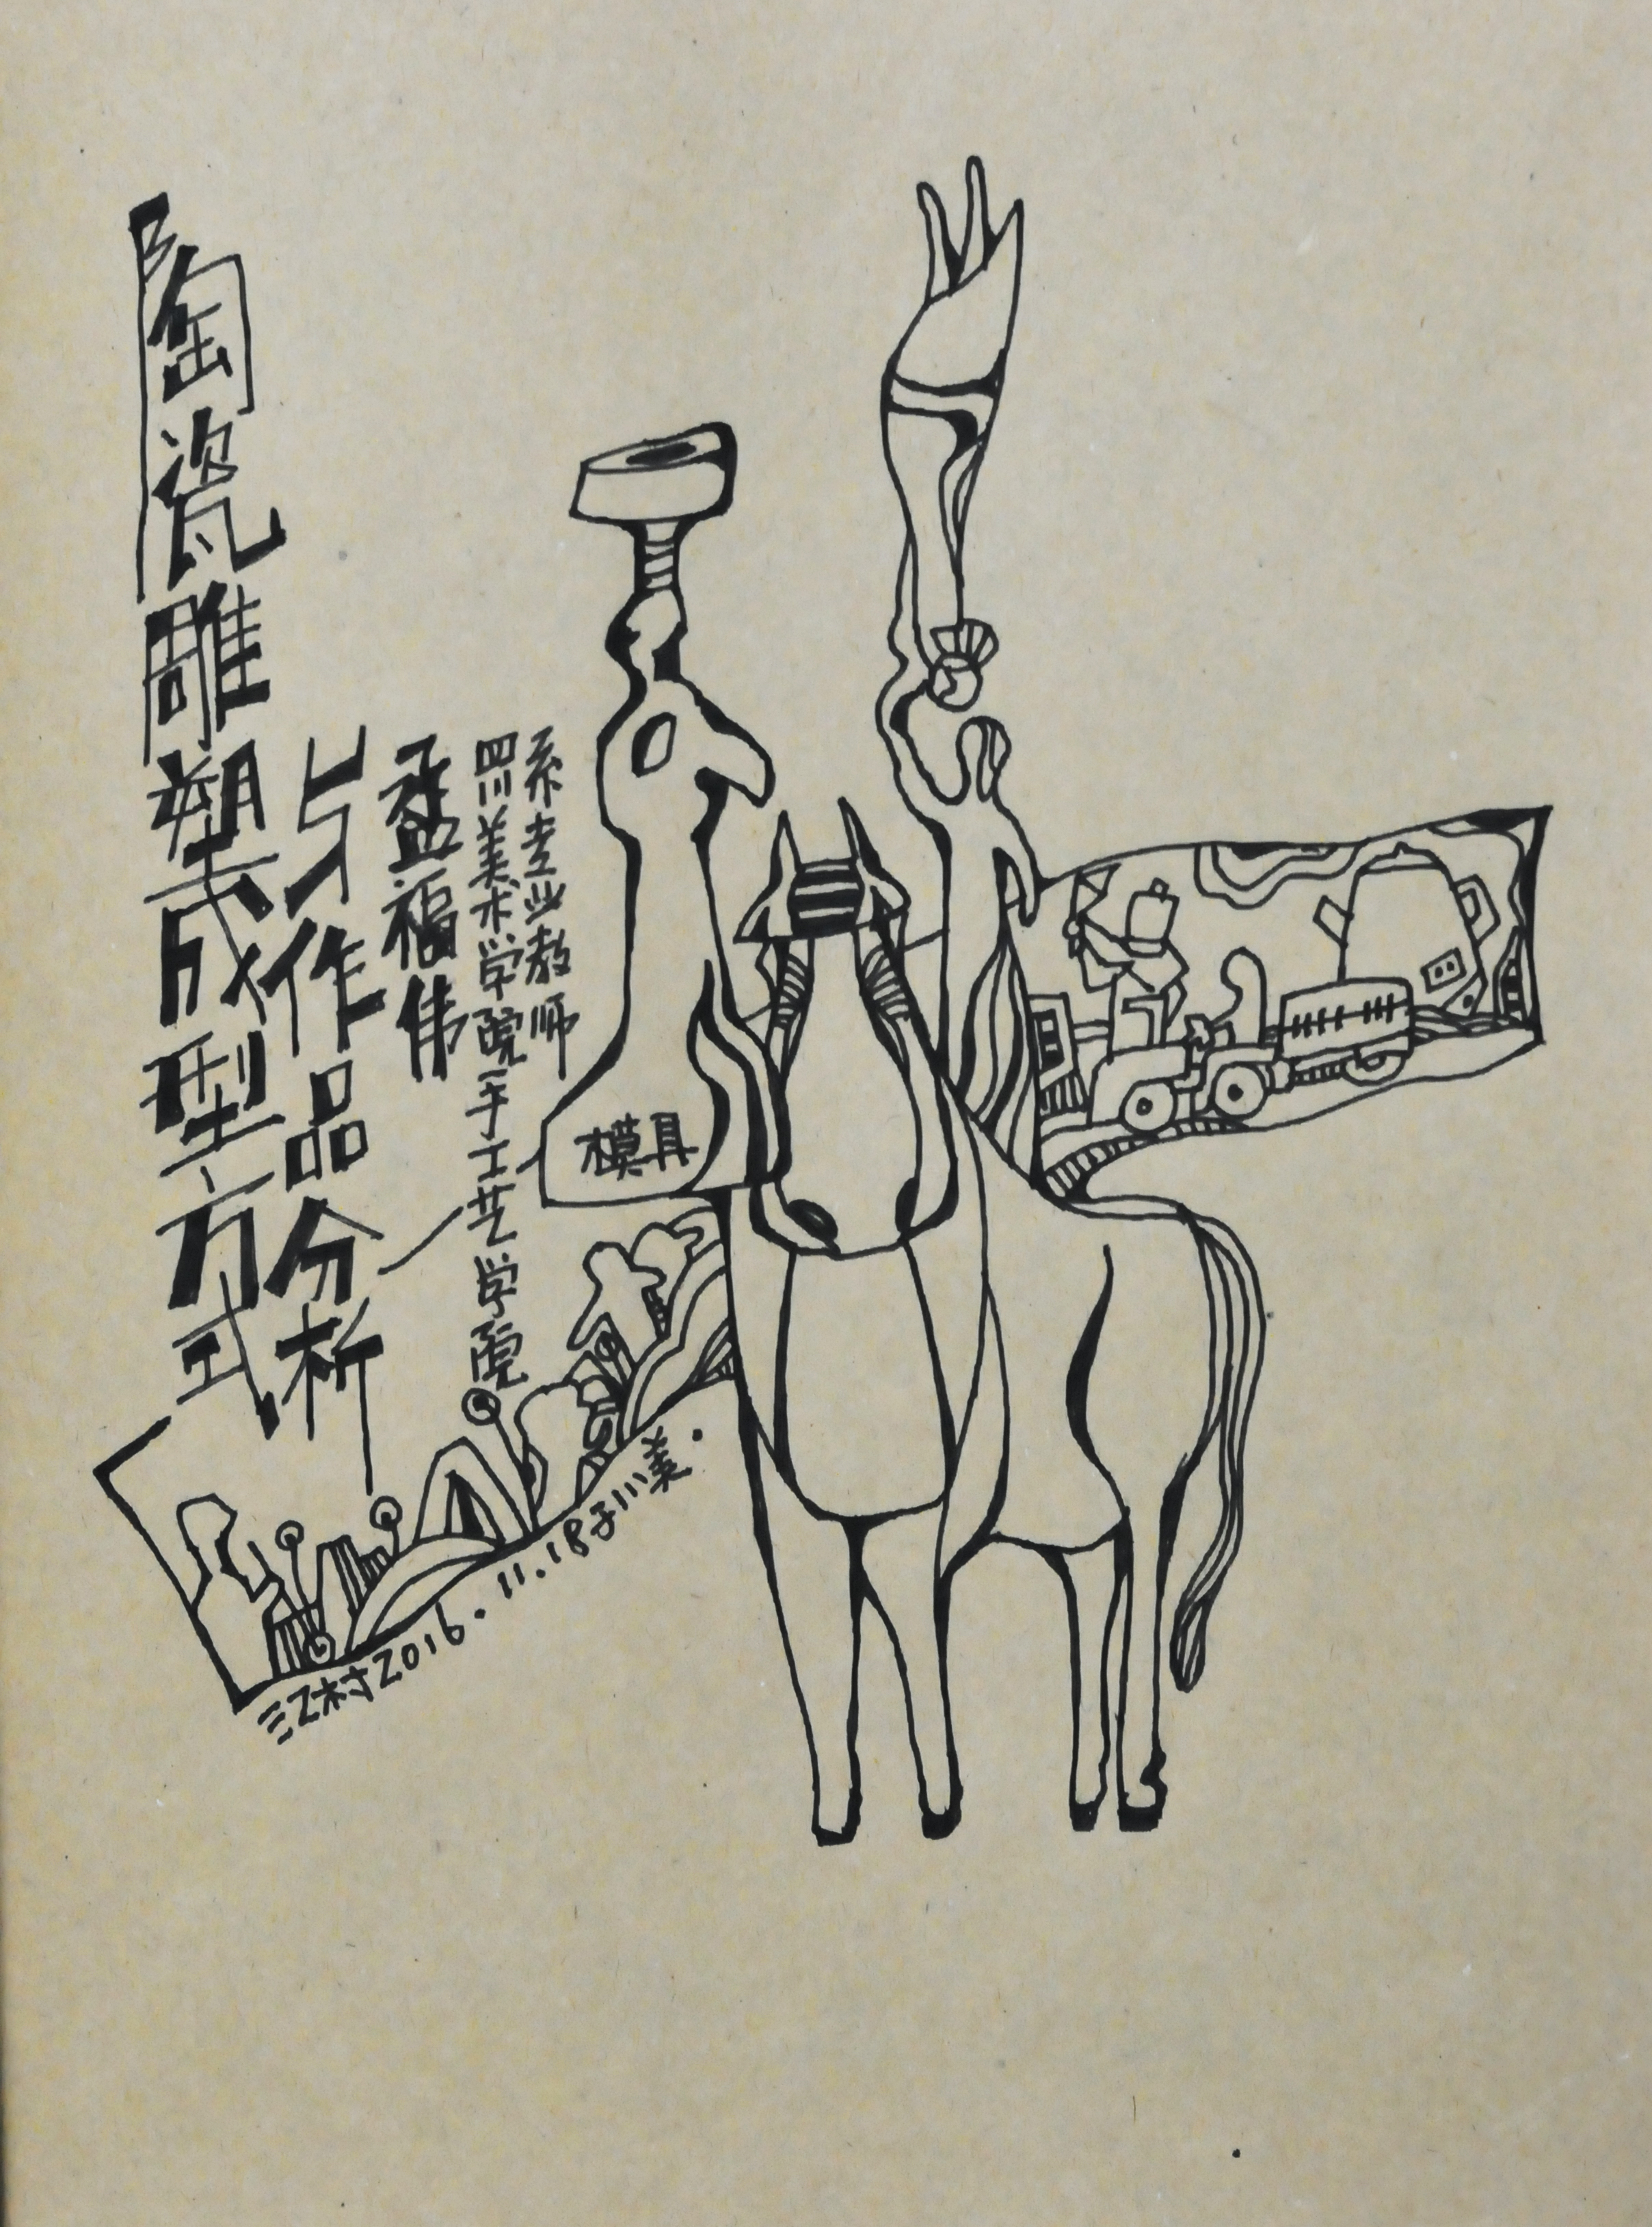 陶瓷雕塑成型方式
与作品分析
孟福伟
四川美术学院手工艺学院
系专业教师
模具
江村2016.11.18于川美.